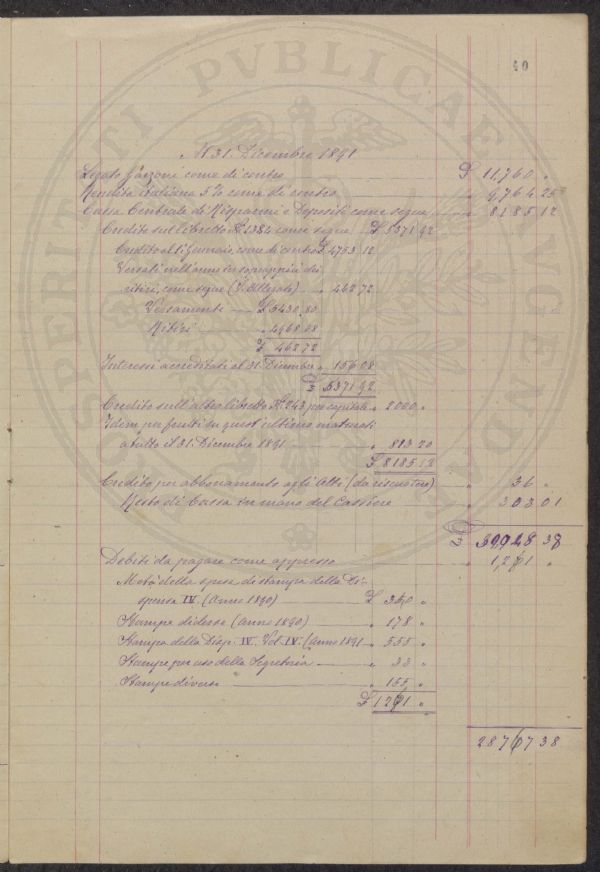 40
Al 31. Dicembre 1891
Legato Garzoni come di contro £ 11,760 "
Rendita italiana 5% come di contro " 9,764 25
Cassa Centrale di Risparmi e Depositi come segue " 8185 12
Credito sul libretto N. 1384 come segue £ 5371 92
Credito al 1 Gennaio, come di contro £ 4753 12
Versati nell'anno in soprappiù dei
ritiri, come segue (V. Allegato) " 462 72
Versamenti £ 5430,80
Ritiri " 4968 08
£ 462 72
Interessi accreditati al 31. Dicembre " 156 08
£ 5371 92
Credito sull'altro libretto N. 243, per capitale " 2000 "
Idem per frutti su quest'ultimo maturati
a tutto il 31. Dicembre 1891 " 813 20
£ 8185 12
Credito per abbonamento agli Atti (da riscuotere) " 36 "
Resto di Cassa in mano del Cassiere " 303 01
£ 38
Debiti da pagare come appresso " 1,2 1 "
Metà della spesa di stampa della Di-
spensa IV. (Anno 1890) £ "
Stampe diverse (Anno 1890) " 178 "
Stampa della Disp. IV. Vol. IV. (Anno 1891 " 555 "
Stampe per uso della Segreteria " 33 "
Stampe diverse " 155 "
£ 12 1 "
28,7 7 38
PROSPERITATI PVBLICAE AVGENDAE